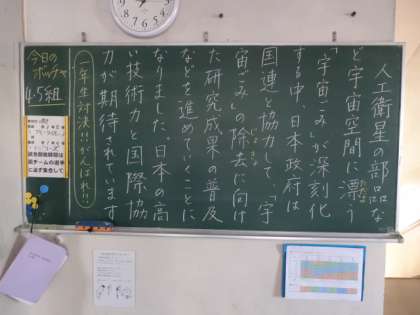 人工衛星の部品な
ど宇宙空間に漂う
「宇宙ごみ」が深刻化
する中、日本政府は
国連と協力して、「宇
宙ごみ」の除去に向け
た研究成果の普及
などを進めていくことに
なりました。日本の高
い技術力と国際協
力が期待されています
一年生対決!!がんばれ!!
今日の
ボッチャ
4-5組
試合開始時間は
両チームの選手
に必ず集合して